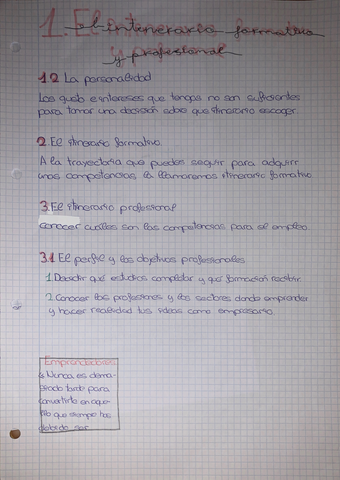 1. El intenerario formativo
y profesional
1.2 La personalidad
Los gusto e intereses que tengas no son suficientes
para tomar una decisión sobre que itinerario escoger.
2. El itinerario formativo
A la trayectoria que puedes seguir para adquirir
unas competencias, la llamaremos itinerario formativo.
3. El itinerario professional
Conocer cuáles son las competencias para el empleo.
3.1 El perfil y los objetivos professionales
1. Decidir qué estudios completar y que formación recibir.
2. Conocer los profesiones y los sectores donde emprender
y hacer realidad tus ideas como empresario.
Emprendedores
Nunca es dema-
siado tarde para
convertirte en aque-
llo que siempre has
debido ser